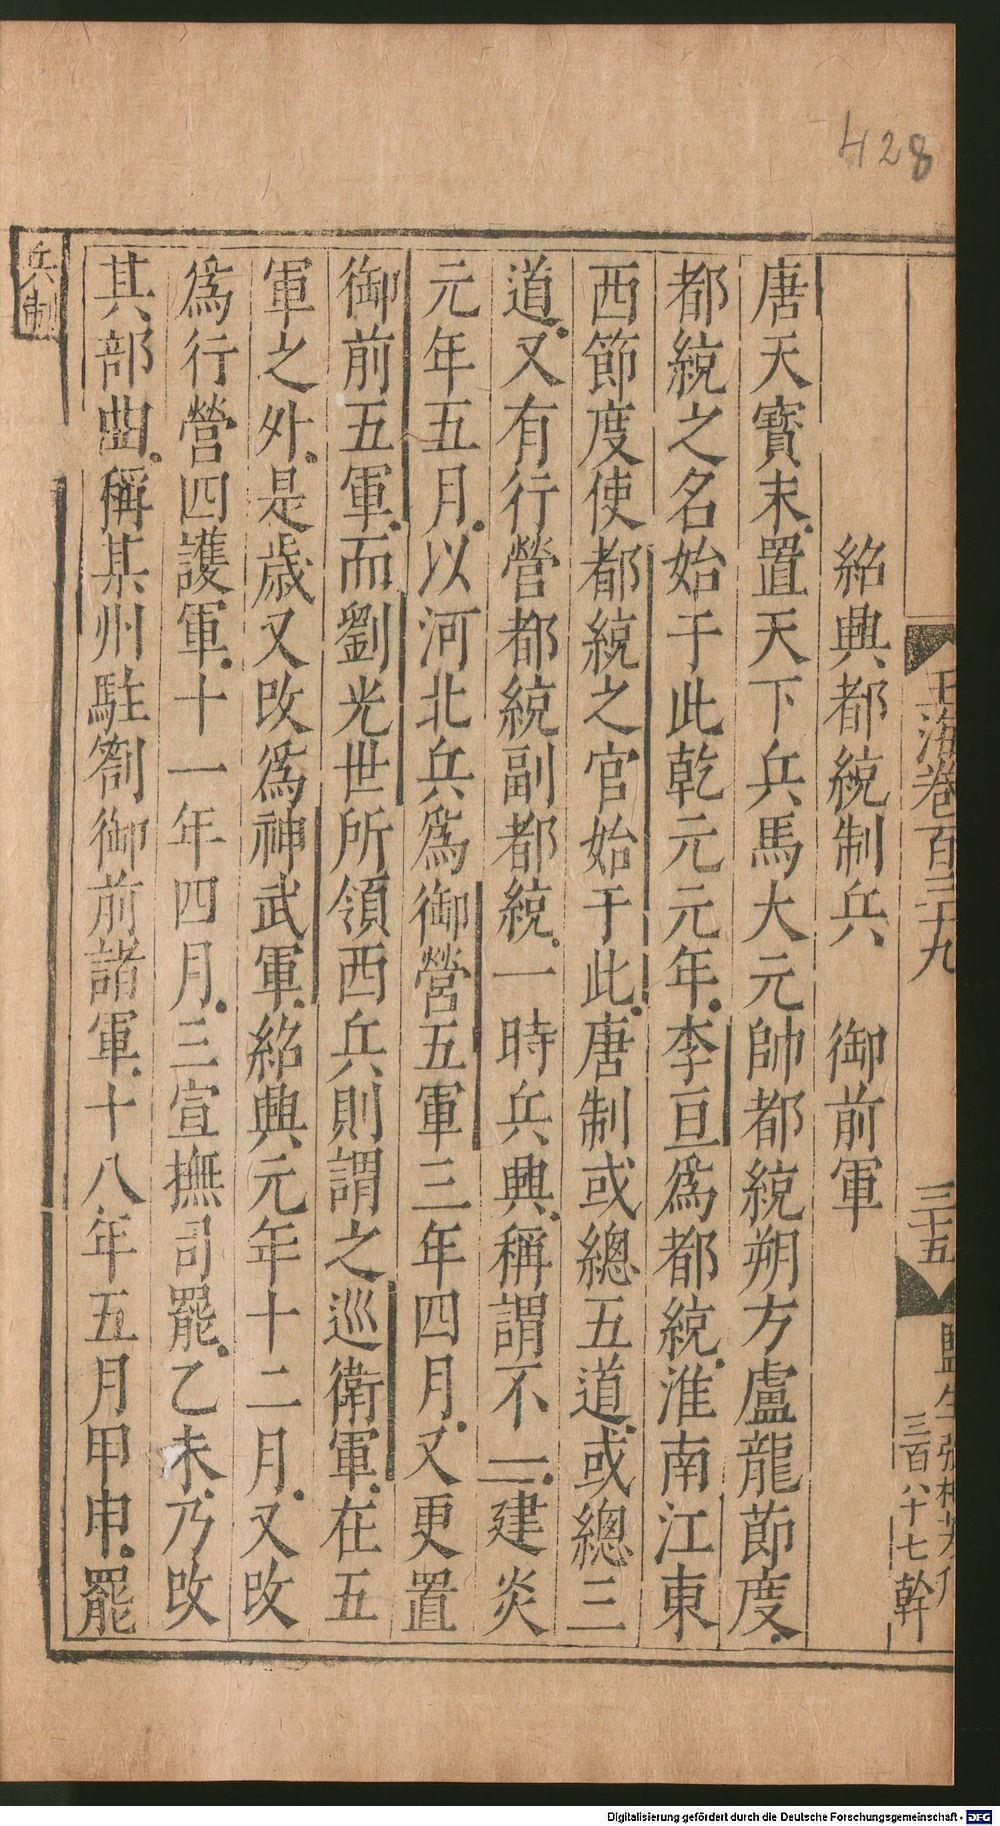 428
玉海卷百三十九
三十五
監生張
三百八十七
幹
紹興都統制兵 御前軍
唐天寳末置天下兵馬大元帥都統朔方盧龍節度
都統之名始于此乾元元年李亘爲都統淮南江東
西節度使都統之官始于此唐制或總五道或總三
道又有行營都統副都統一時兵興稱謂不一建炎
元年五月以河北兵爲御營五軍三年四月又更置
御前五軍而劉光世所領西兵則謂之巡衛軍在五
軍之外是歳又改爲神武軍紹興元年十二月又改
爲行營四護軍十一年四月三宣撫司罷乙未乃改
其部曲稱某州駐劄御前諸軍十八年五月甲申罷
兵制
Digitalisierung gefördert durch die Deutsche Forschungsgemeinschaft - DFG